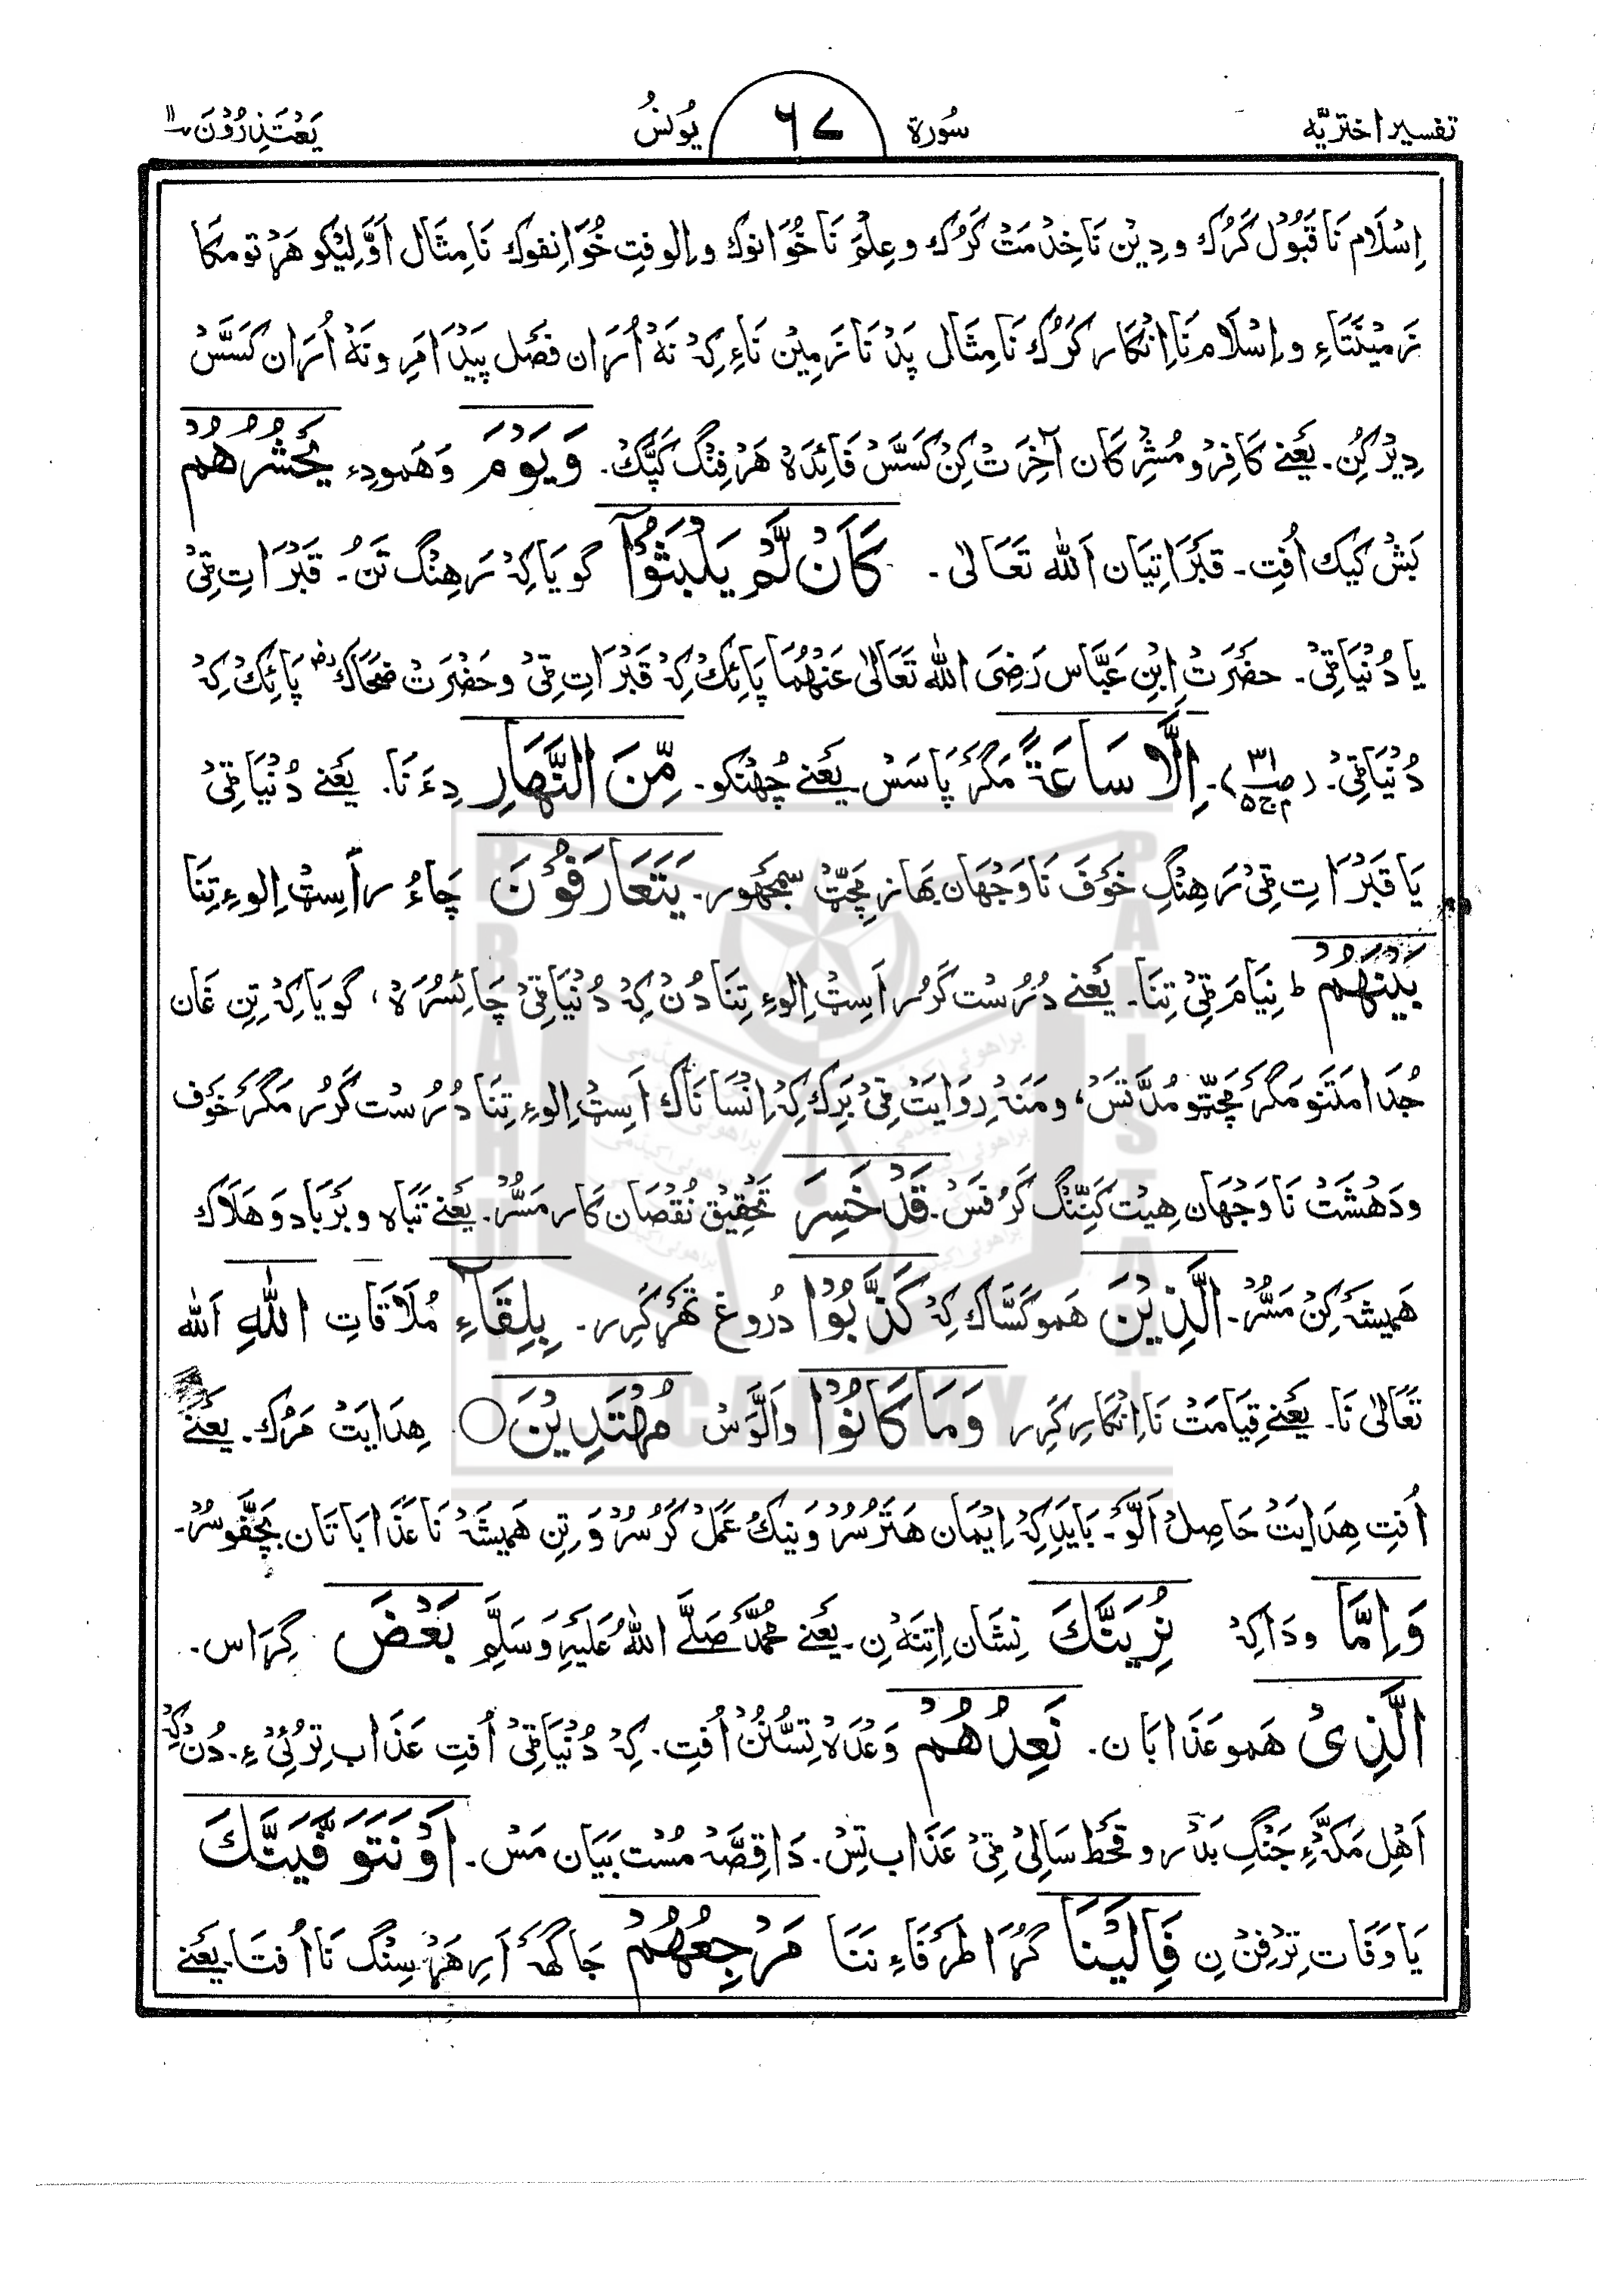 تفسیر اختریّه
سُورة
٦٧
یُونسُ
یَعْتَذِرُوْنَ ۱۱
اِسْلَام نَا قَبُوْل کَرُک و دِیْن نَا خِذْمَتْ کَرُک و عِلْمْ نَا خُوَانوک و اِلوفتِ خُوَانِفوک نَا مِثَال اَوَّلِیْکو هَرْتومَکا
زَمِیْنَتَاءِ و اِسْلَام نَا اِنْکَار کَرُک نَا مِثَال پِدْ نَا زَمِیْن نَاءِ کِہْ نَہْ اُرَان فَصَل پَیْدَا مَرِ و نَہْ اُرَان کَسَّسْ
دِیْر کِن۔ یَعْنے کَافِر و مُشْرِکَان آخِرَتْ کِنْ کَسَّسْ فَائِدَہْ هَرْفِنْگ کَپَّکْ۔ وَیَوْمَ وَهَمودِء یَحْشُرُهُمْ
بَشْ کیک اُفتِ۔ قَبْرَاتِیَان اَللّٰه تَعَالیٰ۔ کَاَنْ لَّمْ یَلْبَثُوْٓا گویَا کِہْ رَهِنْگ تَنُ۔ قَبْرَاتِ ٹِیْ
یَا دُنْیَا ٹِیْ۔ حضْرَتْ اِبْنِ عَبَّاس رَضِیَ اللّٰه تَعَالیٰ عَنْهُمَا پَائِکْ کِہْ قَبْرَاتِ ٹِیْ و حَضْرَتْ ضَحَّاکْ پَائِکْ کِہْ
دُنْیَا ٹِیْ۔ اِلَّا سَاعَةً مَگَرْ پَاسَسْ یَعْنے چُهْنکو۔ مِّنَ النَّهَارِ دِءَ نَا۔ یَعْنے دُنْیَا ٹِیْ
یَا قَبْرَاتِ ٹِیْ رَهِنْگِ خَوْفَ نَا وَجْهَان بَهَاز مَچِّٹْ سَمْجهُور۔ یَتَعَارَفُوْنَ چَاءُ ر اَسِٹْ اِلوءِ تِنَا
بَیْنَهُمْ ط نِیَام ٹِیْ تِنَا۔ یَعْنے دُرُسْت کَرُر اَسِٹْ اِلوءِ تِنَا دُنْ کِہْ دُنْیَا ٹِیْ چَائِسُرَہْ، گویَا کِہْ تِن غَان
جُدَا مَتَنو مَگَرْ مَچِّٹو مُدَّتَسْ، و مَنَہْ رِوَایَتْ ٹِیْ بَرِکْ کِہْ اِنْسَانَاک اَسِٹْ اِلوءِ تِنَا دُرُسْت کَرُر مَگَرْ خَوْف
و دَهْشَتْ نَا وَجْهَان هِیْت کَنِّنْگ کَرُفَسْ۔ قَدْ خَسِرَ تَحْقِیْق نُقْصَان کَار مَسُّرْ۔ یَعْنے تَبَاه و بَرْبَاد و هَلَاک
هَمِیْشَہْ کِنْ مَسُّرْ۔ الَّذِیْنَ هَمو کَسَّاک کِہْ کَذَّبُوْا دُروغ تَهَرْکَرِر۔ بِلِقَآءِ مُلَاقَاتِ اللّٰهِ اَللّٰه
تَعَالیٰ نَا۔ یَعْنے قِیَامَتْ نَا اِنْکَار کَرِر وَمَا کَانُوْا وَالَّوَسْ مُهْتَدِیْنَ ○ هِدَایَتْ مَرُک۔ یَعْنے
اُفتِ هِدَایَتْ حَاصِلْ اَلَّوْ۔ بَایَدِ کِہْ اِیْمَان هَتَرْسُرْ وَ نِیکْ عَمَلْ کَرْسُرْ وَ تِنِ هَمِیْشَہْ نَا عَذَابَاتَان بَچِّفوسُرْ۔
وَاِمَّا و دَاکِہْ نُرِیَنَّکَ نِشَان اِتِنَہْ نِ۔ یَعْنے مُحَمَّدْ صَلَّے اللّٰهُ عَلَیْہِ وَسَلَّمْ بَعْضَ کِرَاس۔
الَّذِیْ هَمو عَذَابَان۔ نَعِدُهُمْ وَعْدَہْ تِسُّنُنْ اُفتِ۔ کِہْ دُنْیَا ٹِیْ اُفتِ عَذَاب تِرُئِیْ ءِ۔ دُنْ کِہْ
اَهْلِ مَکَّہْءِ جَنْگِ بَدْر و قَحْط سَالِیْ ٹِیْ عَذَاب تِسْ۔ دَا قِصَّہْ مُسْٹ بَیَان مَسْ۔ اَوْ نَتَوَفَّیَنَّکَ
یَا وَفَات تِرْفِنْ نِ فَاِلَیْنَا گُرَا طَرَفَاءِ نَنَا مَرْجِعُهُمْ جَاگَهْ اَرِ هَرْسِنْگ نَا اُفتَا۔ یَعْنے